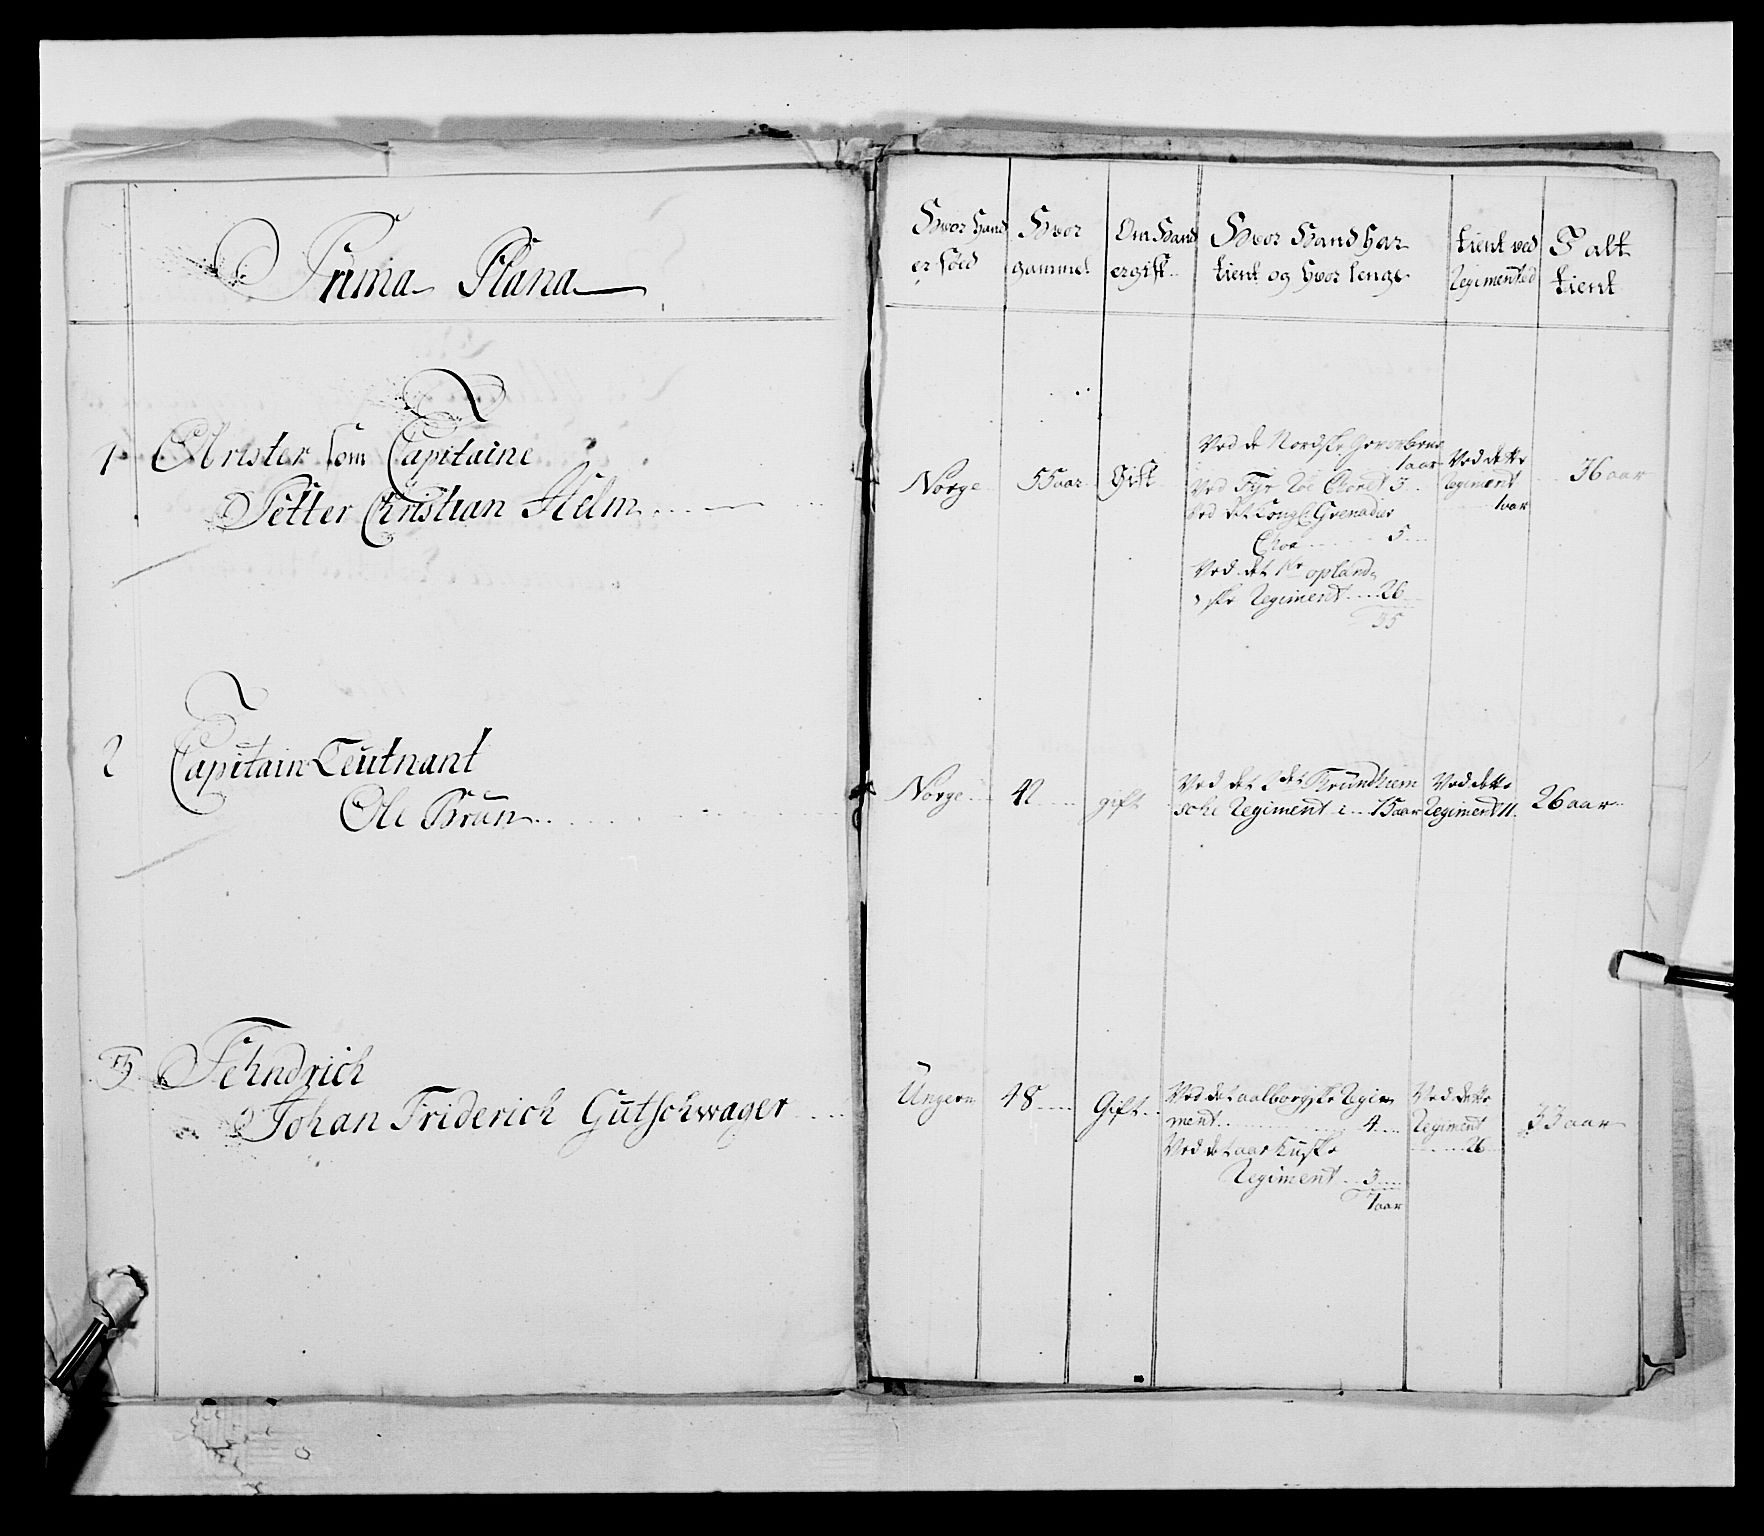 Prima Plana
Hvor Hand
er föed
Hvor
gammel
Om Hand
er gift
Hvor Hand har
tient og hvor lenge
tient ved
Regimented
I alt
tient
1
Arister som Capitaine
Petter Christian Holm
Norge
55 aar
Gift
Ved de Nordske
1 aar
Ved
3
Ved det Kongl: Grenadier
Cor 5
Ved det 1te opland-
ske Regiment 26
35
Ved dette
Regiment
1 aar
36 aar
2
Capitain Leutnant
Ole Brun
Norge
42
gift
Ved det 2det Trundhiem
sche Regiment 15 aar
Ved dette
Regiment 11
26 aar
3
Fehndrich
Johan Friderich Gutschwager
Ungern
48
Gift
Ved det aalborgske Regim
ment 4
Ved det aarhuske
Regiment 3
7 aar
Ved dette
Regiment
26
33 aar